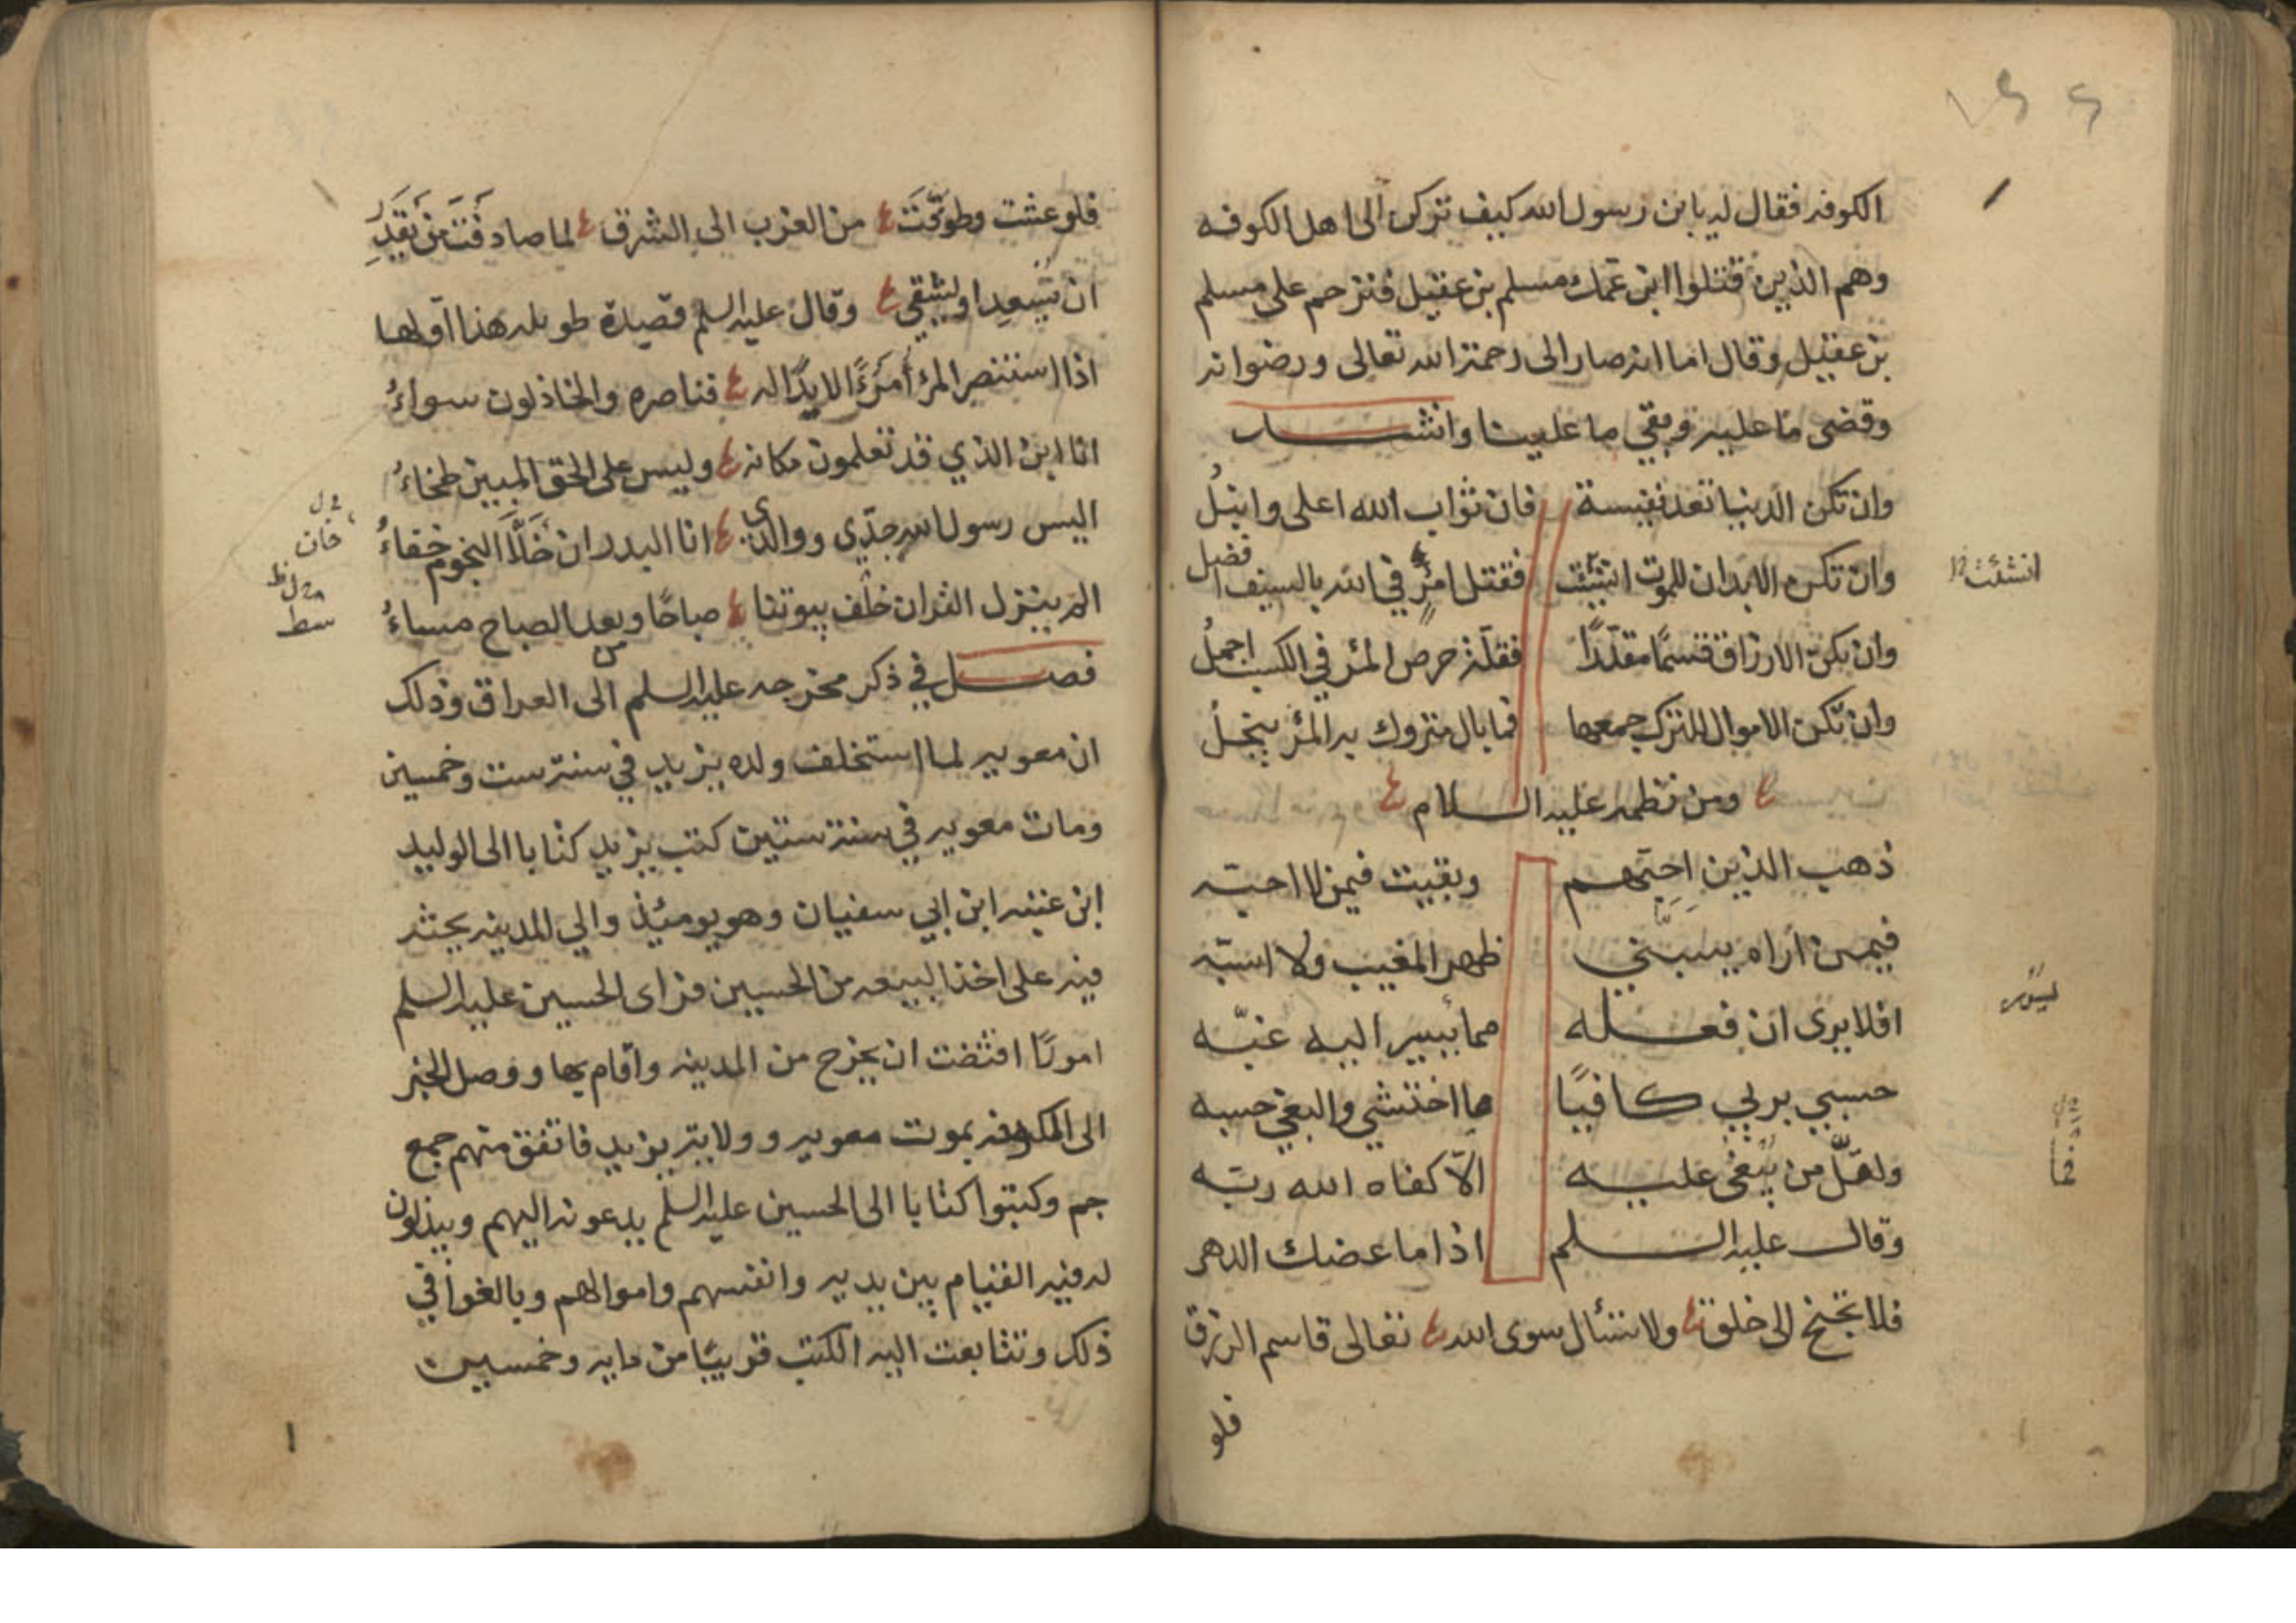 الكوفه فقال له يا بن رسول الله كيف تركن الى اهل الكوفه
وهم الذين قتلوا ابن عمك مسلم بن عقيل فترحم على مسلم
بن عقيل وقال اما انه صار الى رحمة الله تعالى ورضوانه
وقضى ما عليه وبقي ما علينا وانشـــــاء
وان تكن الدنيا تعد نفيسة فان ثواب الله اعلى وانبلُ
وان تكن الابدان للموت انشئت فقتل امرء في الله بالسيف افضل
انشئت
وان يكن الارزاق قسمًا مقدّرًا فقلة حرص المرء في الكسب اجملُ
وان تكن الاموال للترك جمعها فما بال متروك به المرء يبخلُ
ومن نظمه عليه الســـلام
ذهب الذين احبهم وبقيت فيمن لا احبه
فيمن اراه يسبني ظهر المغيب ولا اسبه
افلا يرى ان فعـــله مما يسير اليه غبّه
حسبي بربي كـافيًا ما اختشي والبغي حسبه
ولقلّ من يُبغى عليـــه الّا كفاه الله ربّه
وقال عليه الســـلم اذا ما عضك الدهر
فلا تجنح الى خلق ولا تسئال سوى الله تعالى قاسم الرزق
فلو
فلو عشت وطوّفت من الغرب الى الشرق لما صادفت من يقدر
ان يسعد او يشقي وقال عليه السلم قصيدة طويله هذا اولها
اذا استنصر المرء أمرءً لا يدًا له فناصره والخاذلون سواءُ
انا ابن الذي قد تعلمون مكانه وليس على الحق المبين طخاءُ
اليس رسول الله جدّي ووالدي انا البدر ان خلا النجوم خفاءُ
خان
الم ينزل القران خلف بيوتنا صباحًا ومن بعد الصباح مساءُ
فصـــل في ذكر مخرجه عليه السلم الى العراق وذلك
ان معويه لما استخلف ولده يزيد في سنة ست وخمسين
ومات معويه في سنة ستين كتب يزيد كتابا الى الوليد
ابن عتبه ابن ابي سفيان وهو يومئذ والي المدينه يحثه
فيه على اخذ البيعه من الحسين فراى الحسين عليه السلم
امورًا اقتضت ان يخرج من المدينه واقام بها ووصل الخبر
الى الكوفه بموت معويه وولاية يزيد فاتفق منهم جمع
جم وكتبوا كتابا الى الحسين عليه السلم يدعونه اليهم ويبذلون
له فيه القيام بين يديه وانفسهم واموالهم وبالغوا في
ذلك وتتابعت اليه الكتب قريبًا من مايه وخمسين